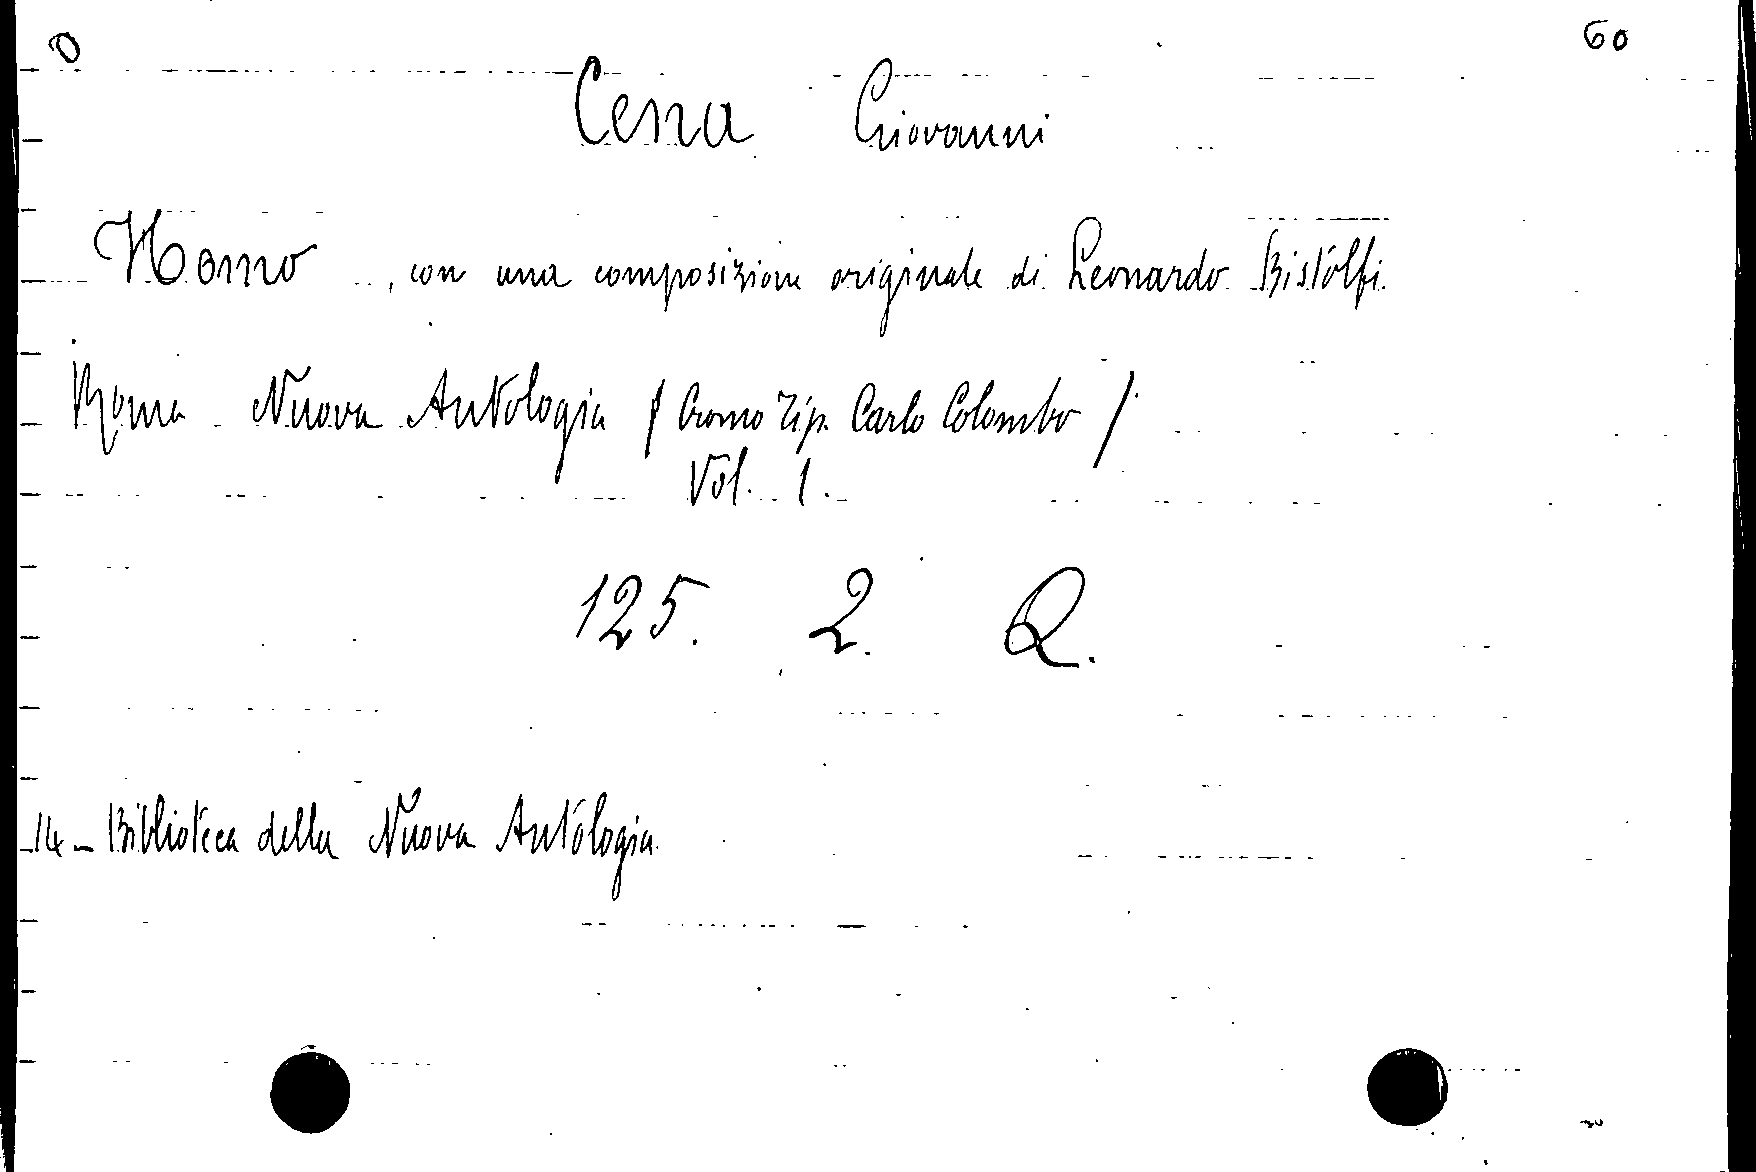 0 60
Cena Giovanni
Homo, con una composizione originale di Leonardo Bistolfi.
Roma Nuova Antologia / Cromo Tip. Carlo Colombo /
Vol. 1.
125. 2. Q.
14 - Biblioteca della Nuova Antologia